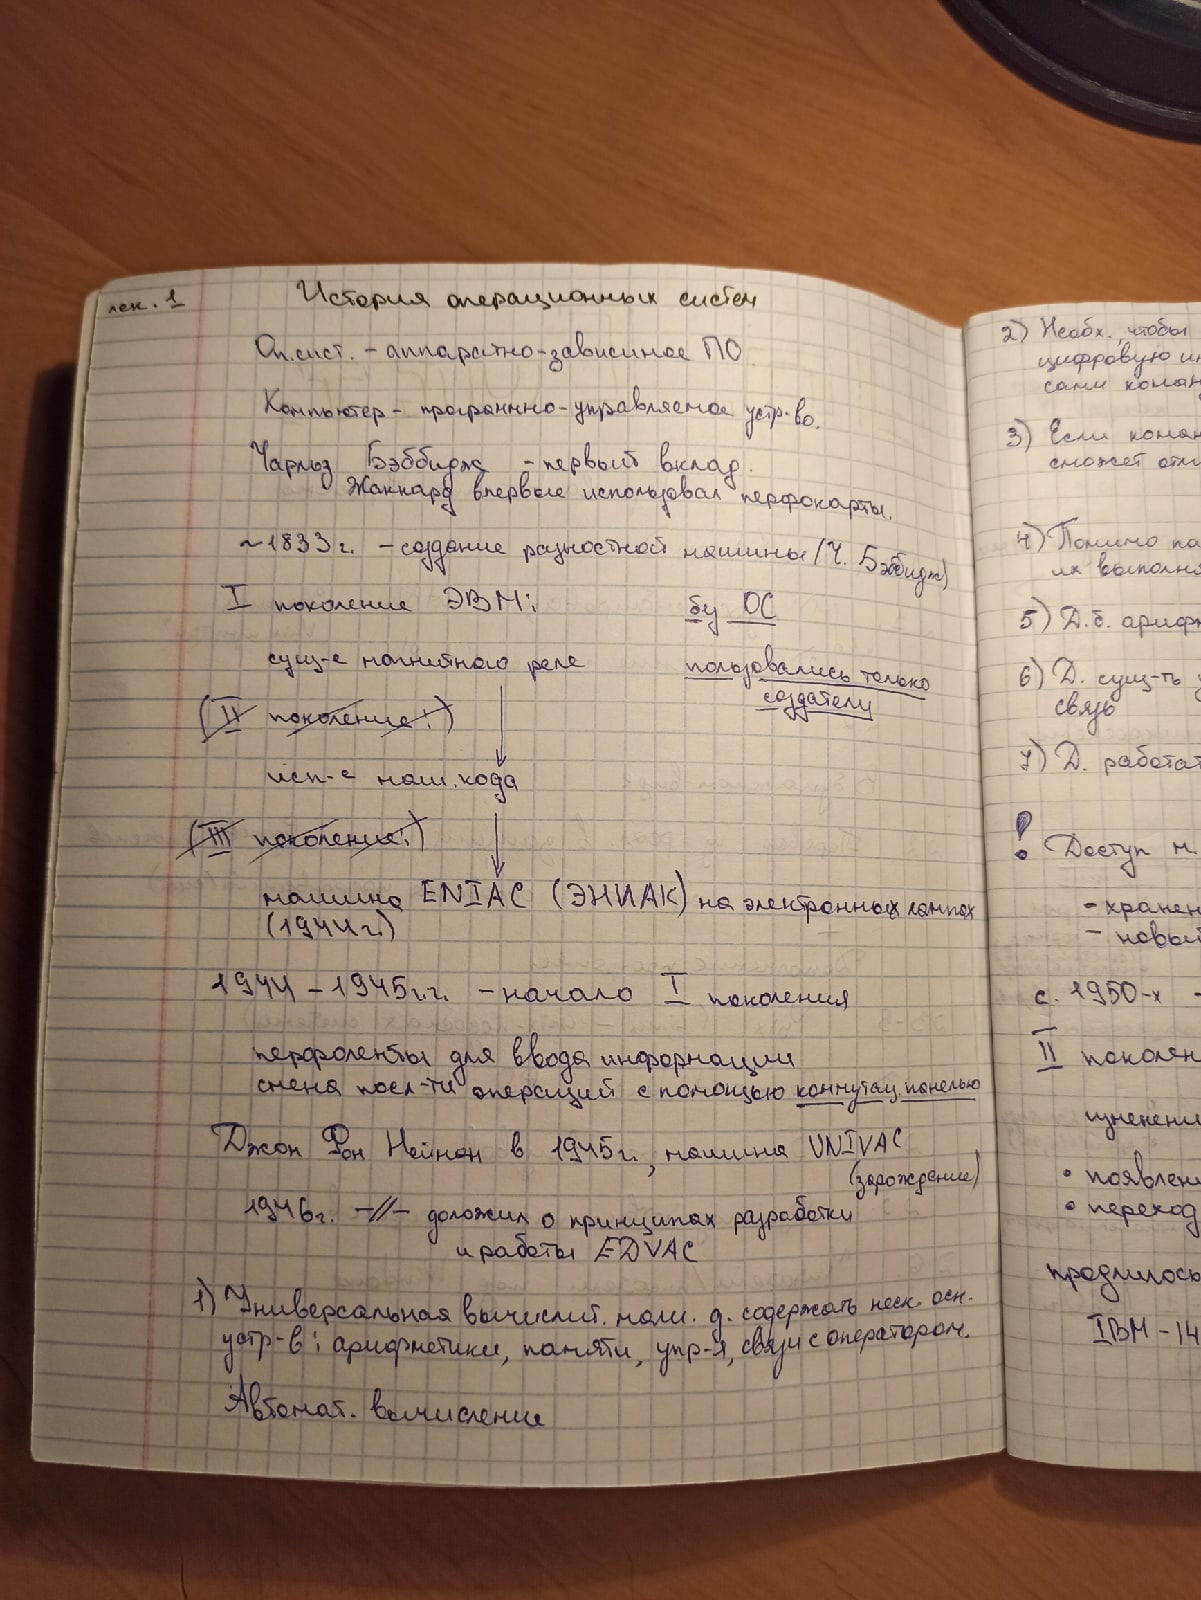 лек. 1
История операционных систем
Оп.сист. - аппаратно-зависимое ПО
Компьютер - программно-управляемое устр-во.
Чарльз Бэббидж - первый вклад.
Жаккард впервые использовал перфокарты.
~1833г. - создание разностной машины (Ч. Бэббидж)
I поколение ЭВМ: бу ОС
сущ-е магнитного реле пользовались только
создатели
(II поколение:)
исп-е маш. кода
(III поколение:)
машина ENIAC (ЭНИАК) на электронных лампах
(1944г.)
1944 - 1945г.г. - начало I поколения
перфоленты для ввода информации
смена посл-ти операций с помощью коммутац. панелью
Джон Фон Нейман в 1945г., машина UNIVAC
(зарождение)
1946г. -//- доложил о принципах разработки
и работы EDVAC
1) Универсальная вычислит. маш. д. содержать неск. осн.
устр-в: арифметики, памяти, упр-я, связи с оператором.
Автомат. вычисление
2) Необх., чтобы
цифровую
сами коман
3) Если коман
сможет
4) Помимо
их выполн
5) Д.б. ариф
6) Д. сущ-ть
связь
7) Д. работат
! Доступ м.
- хранен
- новый
с. 1950-х -
II поколен
• появлен
• переход
продлилось
IBM - 14